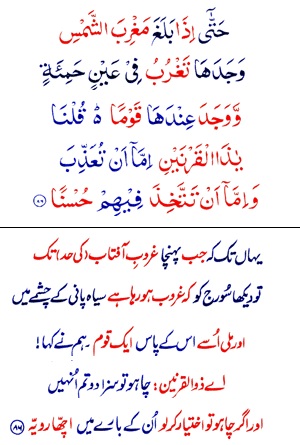 حَتّٰٓى اِذَا بَلَغَ مَغْرِبَ الشَّمْسِ
وَجَدَهَا تَغْرُبُ فِىْ عَيْنٍ حَمِئَةٍ
وَّوَجَدَ عِنْدَهَا قَوْمًا ۬ؕ قُلْنَا
يٰذَا الْقَرْنَيْنِ اِمَّاۤ اَنْ تُعَذِّبَ
وَاِمَّاۤ اَنْ تَتَّخِذَ فِيْهِمْ حُسْنًا ﴿۸۶﴾
یہاں تک کہ جب پہنچا غروبِ آفتاب (کی حد) تک
تو دیکھا سُورج کو کہ غروب ہورہا ہے سیاہ پانی کے چشمے میں
اور ملی اُسے اس کے پاس ایک قوم ۔ہم نے کہا!
اے ذوالقرنین! چاہو تو سزا دو تم اُنہیں
اور اگر چاہو تو اختیار کرلو اُن کے بارے میں اچھا رویّہ ﴿۸۶﴾